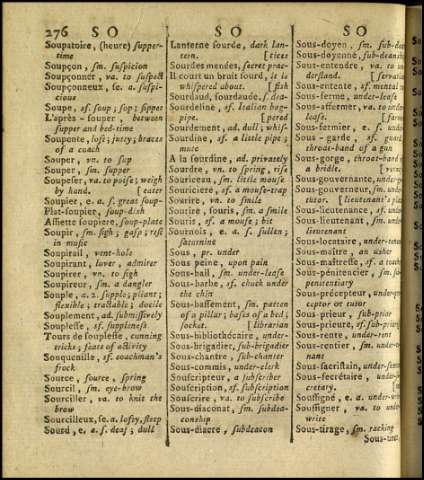 276 S O
S O
S O
Soupatoire, (heure) supper-
time
Soupçon, sm. suspicion
Soupçonner, va. to suspect
Soupçonneux, se, a. suspi-
cious
Soupe, sf. soup; sop; sipper
L'après-souper, between
supper and bed-time
Soupente, loft; jutty; braces
of a coach
Souper, vn. to sup
Souper, sm. supper
Soupeser, va. to poise; weigh
by hand. [eater
Soupier, e, a. s. great soup-
Plat-soupier, soup-dish
Assiette soupiere, soup-plate
Soupir, sm. sigh; gasp; rest
in music
Soupirail, vent-hole
Soupirant, lover; admirer
Soupirer, vn. to sigh
Soupireur, sm. a dangler
Souple, a. 2. supple; pliant;
flexible; tractable; docile
Souplement, ad. submissively
Souplesse, sf. suppleness
Tours de souplesse, cunning
tricks; feats of activity
Souquenille, sf. coachman's
frock
Source, source, spring
Sourcil, sm. eye-brow
Sourciller, va. to knit the
brow
Sourcilleux, se, a. lofty, steep
Sourd, e, a. s. deaf; dull
Lanterne sourde, dark lan-
tern. [tices
Sourdes menées, secret prac-
Il court un bruit sourd, it is
whispered about. [fish
Sourdaud, sourdaude, s. dea-
Sourdeline, sf. Italian bag-
pipe. [pered
Sourdement, ad. dull; whis-
Sourdine, sf. a little pipe;
mute
A la sourdine, ad. privately
Sourdre, vn. to spring, rise
Souriceau, sm. little mouse
Souriciere, sf. a mouse-trap
Sourire, vn. to smile
Sourire, souris, sm. a smile
Souris, sf. a mouse; bit
Sournois, e, a. s. sullen;
saturnine
Sous, pr. under
Sous peine, upon pain
Sous-bail, sm. under-lease
Sous-barbe, sf. chuck under
the chin
Sous-bassement, sm. patten
of a pillar; basis of a bed;
socket. [librarian
Sous-bibliothécaire, under-
Sous-brigadier, sub-brigadier
Sous-chantre, sub-chanter
Sous-commis, under-clerk
Souscripteur, a subscriber
Souscription, sf. subscription
Souscrire, va. to subscribe
Sous-diaconat, sm. subdea-
conship
Sous-diacre, subdeacon
Sous-doyen, sm. sub-de
Sous-doyenné, sub-dean
Sous-entendre, va. to un
derstand. [servation
Sous-entente, sf. mental
Sous-ferme, under-lease
Sous-affermer, va. to under
lease.
Sous-fermier, e, s. und
Sous-garde, sf. guard
throat-band of a gun
Sous-gorge, throat-band
a bridle.
Sous-gouvernante, under-go
Sous-gouverneur, sm. under
tutor. [lieutenant's pla
Sous-lieutenance, sf.
Sous-lieutenant, sm.
lieutenant
Sous-locataire, under-tenan
Sous-maître, an usher
Sous-maîtresse, sf. a teach
Sous-pénitencier, sm.
penitentiary
Sous-précepteur, under-pre
ceptor or tutor
Sous-prieur, sub-prior
Sous-prieure, sf. sub-prior
Sous-rente, under-rent
Sous-rentier, sm. under-te
nant
Sous-sacristain, under-sext
Sous-secrétaire, under-se
cretary.
Soussigné, e, a. under-wr
Soussigner, va. to under
write
Sous-tirage, sm. racking
Sous-